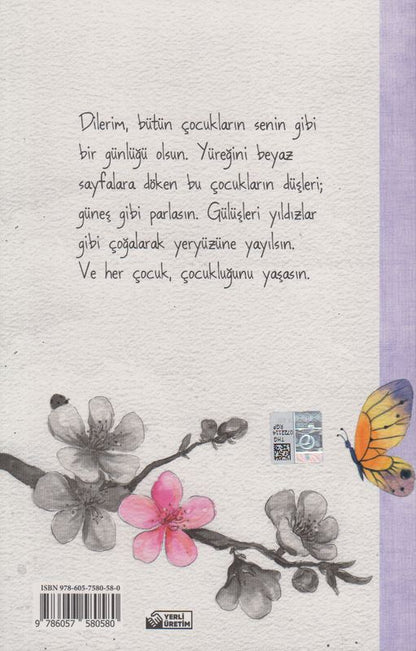 Dilerim, bütün çocukların senin gibi
bir günlüğü olsun. Yüreğini beyaz
sayfalara döken bu çocukların düşleri;
güneş gibi parlasın. Gülüşleri yıldızlar
gibi çoğalarak yeryüzüne yayılsın.
Ve her çocuk, çocukluğunu yaşasın.
THG
0722114
RGP
ISBN 978-605-7580-58-0
9 786057 580580
YERLİ
ÜRETİM